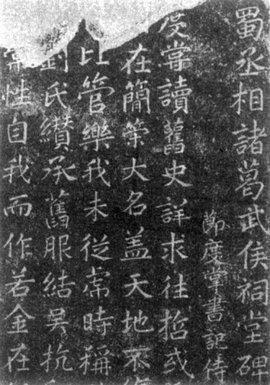 蜀丞相諸葛武侯祠堂碑
節度掌書記侍
度嘗讀舊史詳求往哲或
在簡策大名蓋天地不復
比管樂我未從虎時稱
劉氏纘承舊服結吳抗
常性自我而作若金在